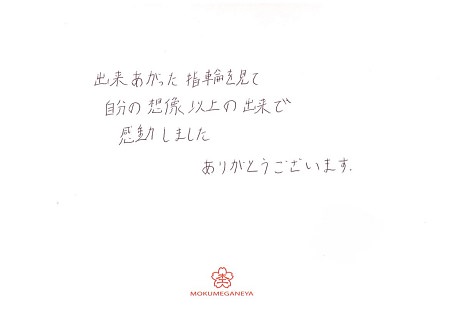 出来あがった 指輪を見て
自分の想像以上の出来で
感動しました
ありがとうございます.
MOKUMEGANEYA